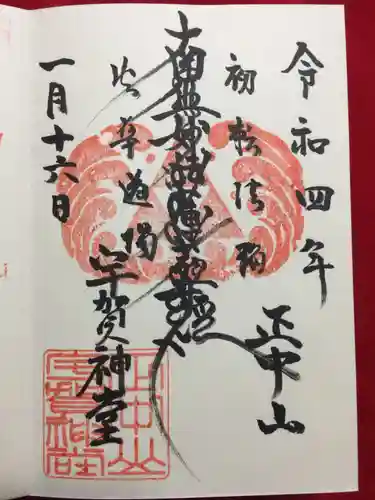 令和四年
正中山
初転法輪
南無妙法蓮華経
法華道場
宇賀神堂
一月十六日